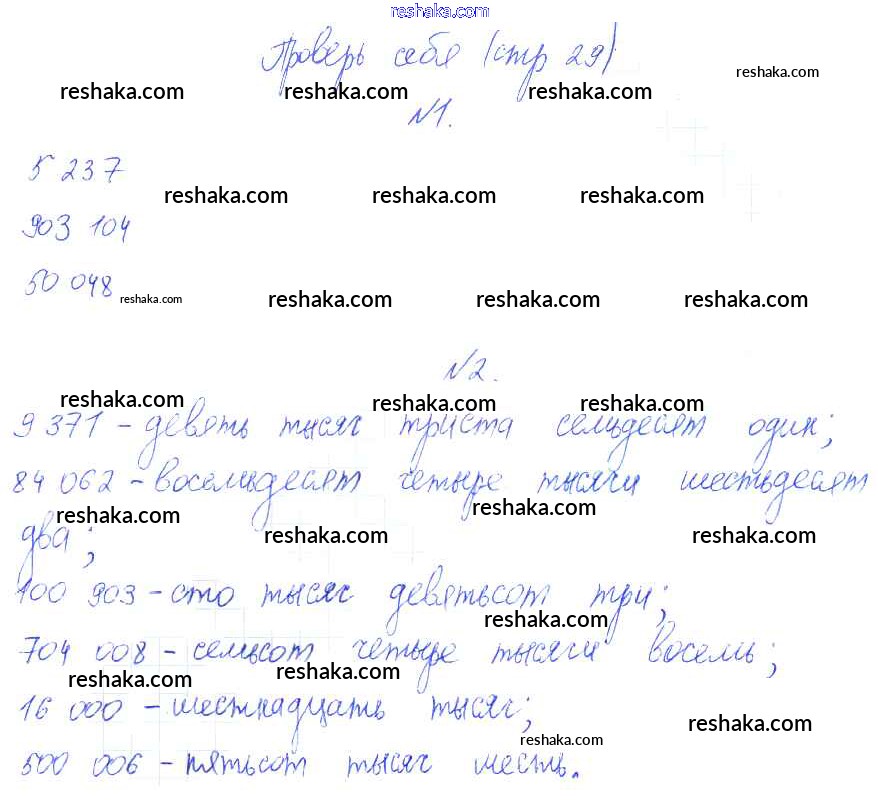 reshaka.com
Проверь себя (стр 29)
reshaka.com
reshaka.com reshaka.com reshaka.com
№1.
5 237
reshaka.com reshaka.com reshaka.com
903 104
50 048
reshaka.com reshaka.com reshaka.com reshaka.com
№2.
reshaka.com reshaka.com reshaka.com
9 371 - девять тысяч триста семьдесят один;
84 062 - восемьдесят четыре тысячи шестьдесят
reshaka.com reshaka.com
два;
reshaka.com reshaka.com
100 903 - сто тысяч девятьсот три;
reshaka.com
704 008 - семьсот четыре тысячи восемь;
reshaka.com reshaka.com
16 000 - шестнадцать тысяч;
reshaka.com
reshaka.com
500 006 - пятьсот тысяч шесть.